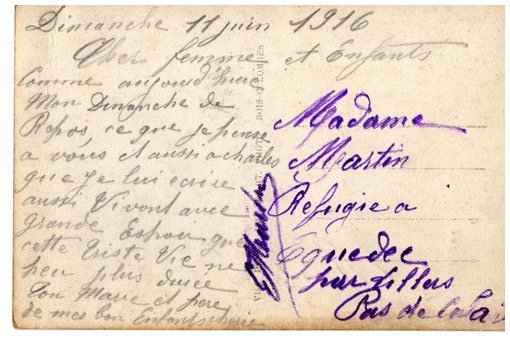 Dimanche 11 juin 1916
Cher femme et Enfants
Comme aujourd'hui
Mon Dimanche de
Repos, ce que je pense
a vous et aussi a charles
que je lui écrire
aussi Vivont avec
grande Espoir que
cette triste Vie ne
peu plus durée
ton Marie et pere
de mes bon Enfants cherie
BOIS-COLOMBES
Madame
Martin
Refugie a
Equedec
par Lillers
Pas de Calai